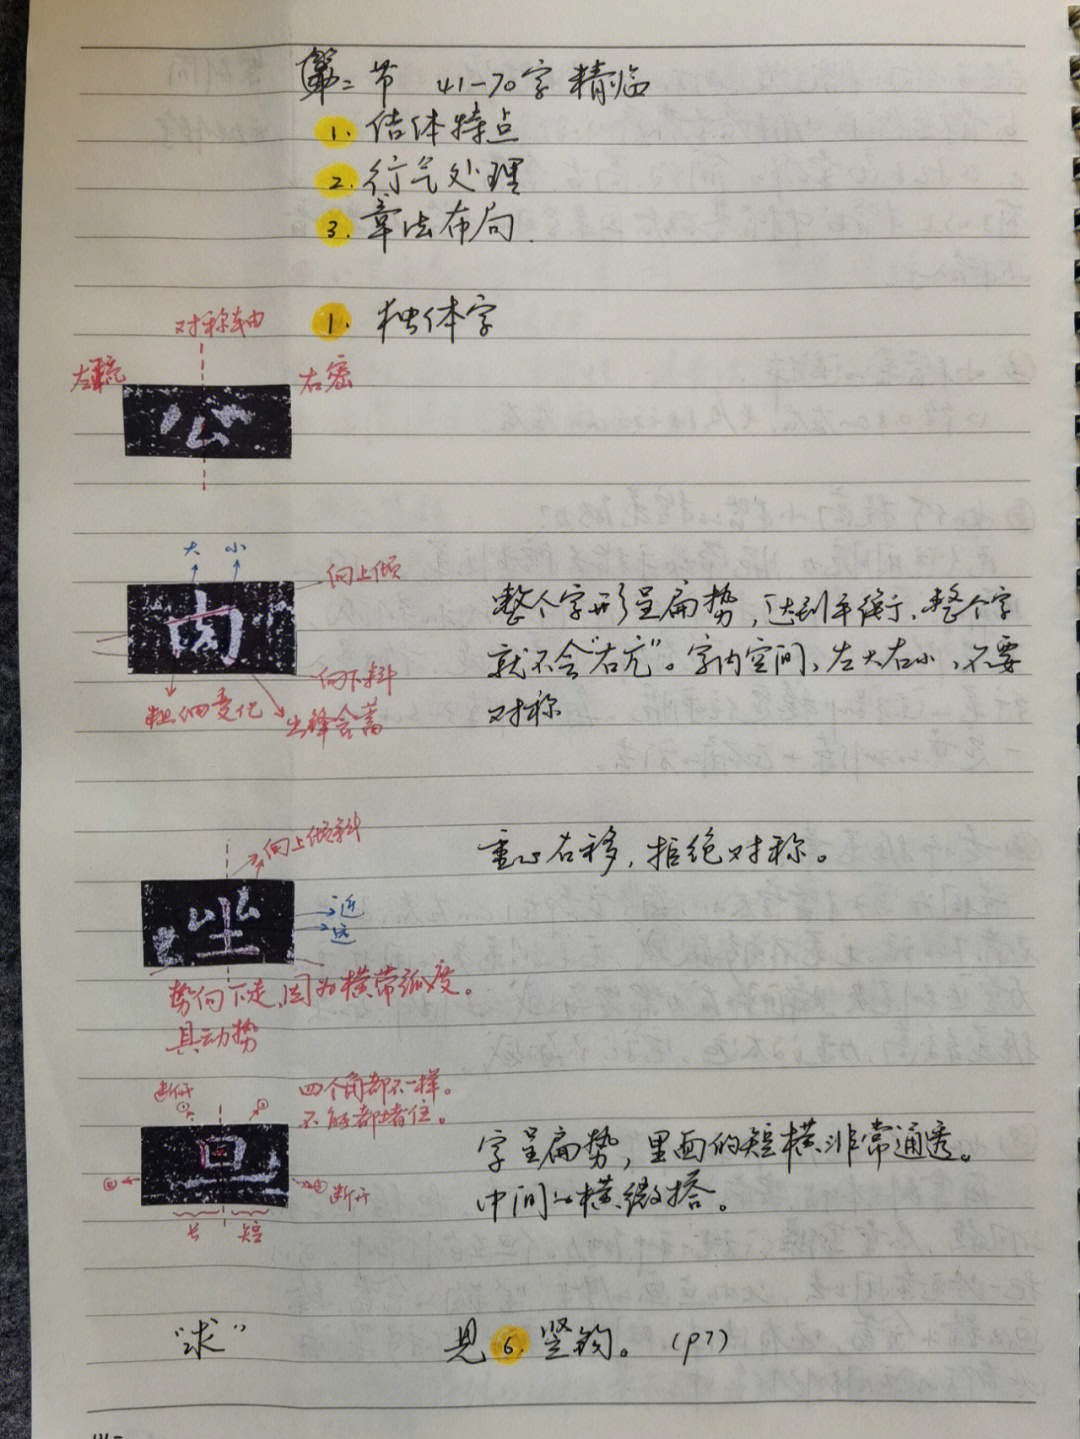 第二节 41-70字精临
1. 结体特点
2. 行气处理
3. 章法布局.
1. 独体字
对称轴
左疏 右密
公
大 小
向上倾
内
向下斜
粗细变化
出锋含蓄
整个字形呈扁势,达到平衡,整个字
就不会“右亢”。字内空间,左大右小,不要
对称
向上倾斜
重心右移,拒绝对称。
坐
近
远
势向下走,因为横带弧度。
具动势
断开
①
②
四个角都不一样。
不能都堵住。
旦
④
③
断开
长 短
字呈扁势,里面的短横非常通透。
中间的横微搭。
“求” 见6. 竖钩。(P7)